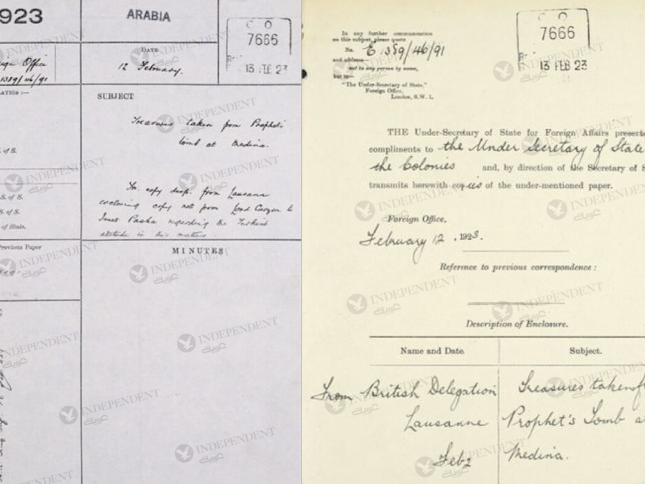 923
ARABIA
C O
7666
13 FEB 23
Office
1389/46/91
DATE
12 February.
SUBJECT
Treasures taken from Prophet's
tomb at Medina.
To copy desp. from Lausanne
enclosing copy note from Lord Curzon to
Ismet Pasha regarding the Turkish
attitude in this matter
S. of S.
S. of S.
S. of S.
of State.
Previous Paper
MINUTES
In any further communication
on this subject, please quote
No. E 1389/46/91
and address—
not to any person by name,
but to—
"The Under-Secretary of State,"
Foreign Office,
London, S.W. 1.
C O
7666
13 FEB 23
THE Under-Secretary of State for Foreign Affairs presents
compliments to the Under Secretary of State
the Colonies and, by direction of the Secretary of S
transmits herewith copies of the under-mentioned paper.
Foreign Office,
February 12, 1923.
Reference to previous correspondence :
Description of Enclosure.
Name and Date.
Subject.
From British Delegation
Lausanne
Feb 2
Treasures taken f
Prophet's Tomb a
Medina.
INDEPENDENT
عربية